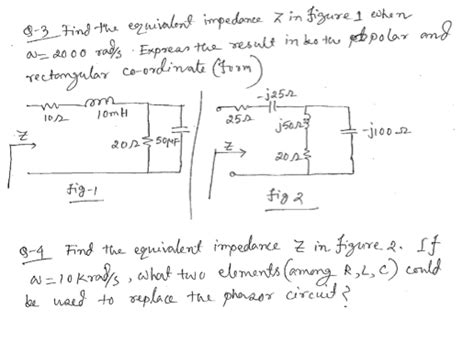 Q-3 Find the equivalent impedance Z in figure 1 when
ω = 2000 rad/s. Express the result in both polar and
rectangular co-ordinate (form)
-j25Ω
10Ω 10mH 25Ω j50Ω -j100Ω
Z 20Ω 50μF Z 20Ω
fig-1 fig 2
Q-4 Find the equivalent impedance Z in figure 2. If
ω = 10 krad/s, what two elements (among R, L, C) could
be used to replace the phasor circuit?